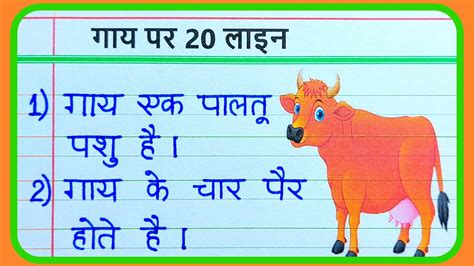 गाय पर 20 लाइन
1) गाय एक पालतू
पशु है।
2) गाय के चार पैर
होते है।